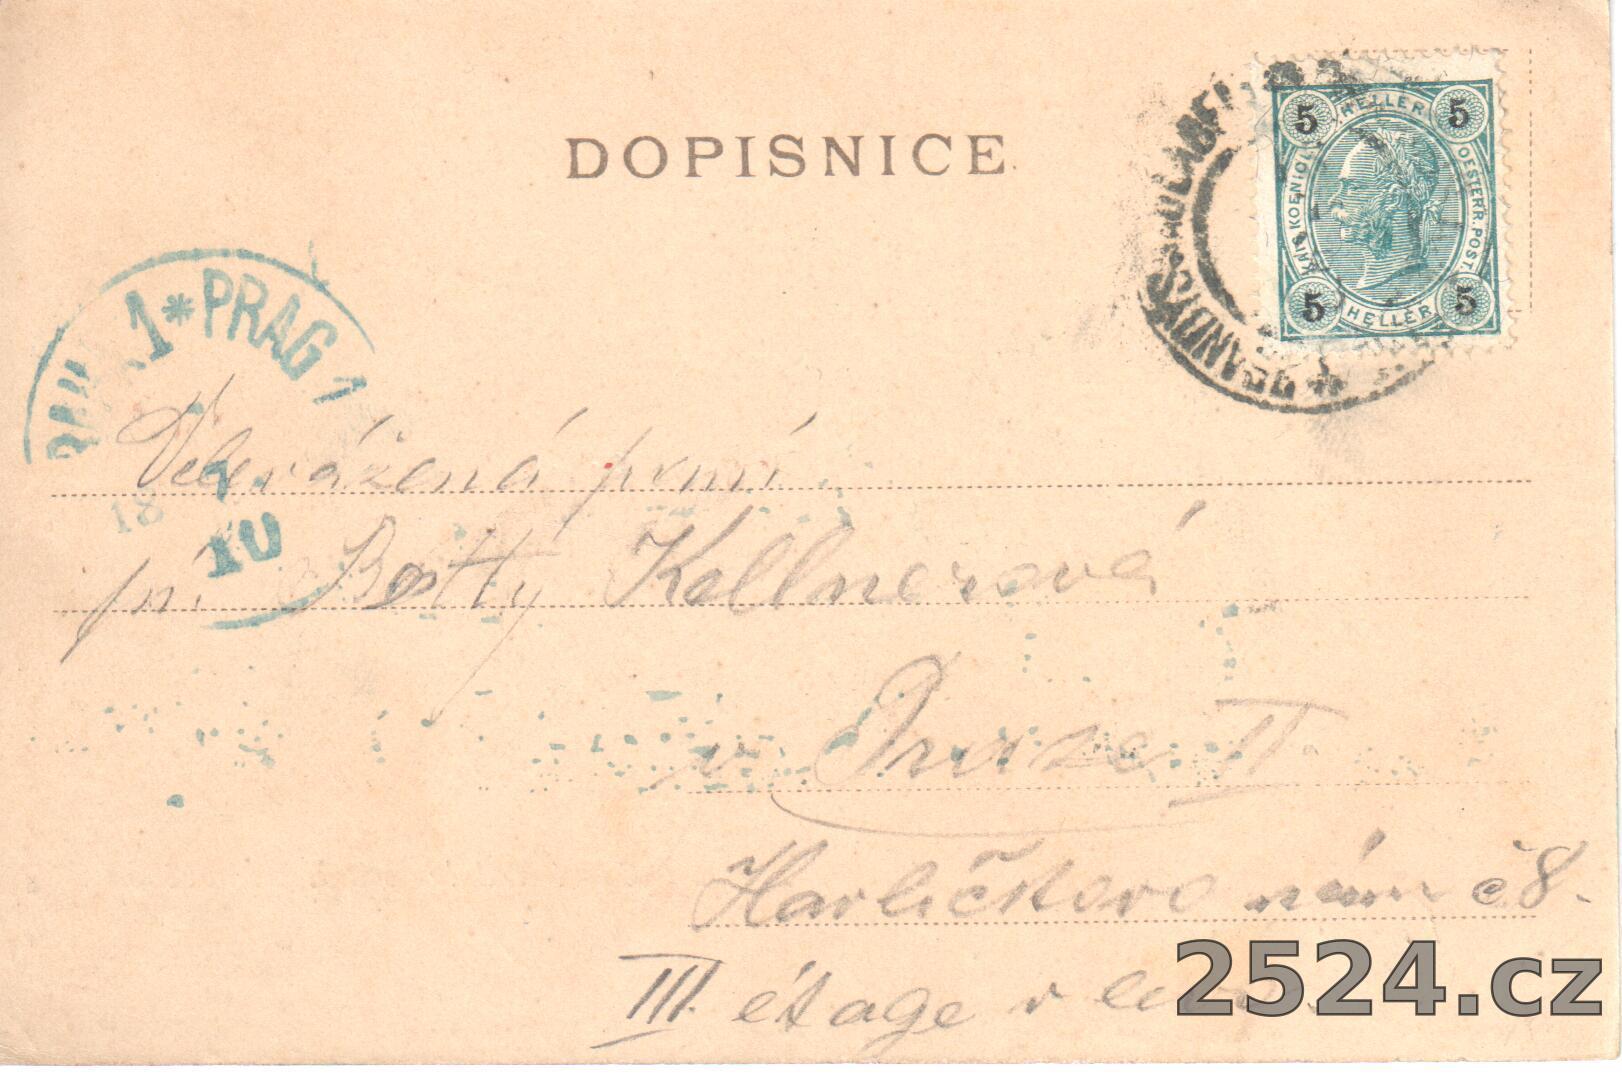 DOPISNICE
5 HELLER 5
KAIS. KOENIGL. OESTERR. POST.
5 HELLER 5
BRANDÝS
PRAG 1
18
7
10
Velevážená paní
pí. Betty Kellnerová
v Praze II
Havlíčkovo nám č 8.
III. étage v
2524.cz